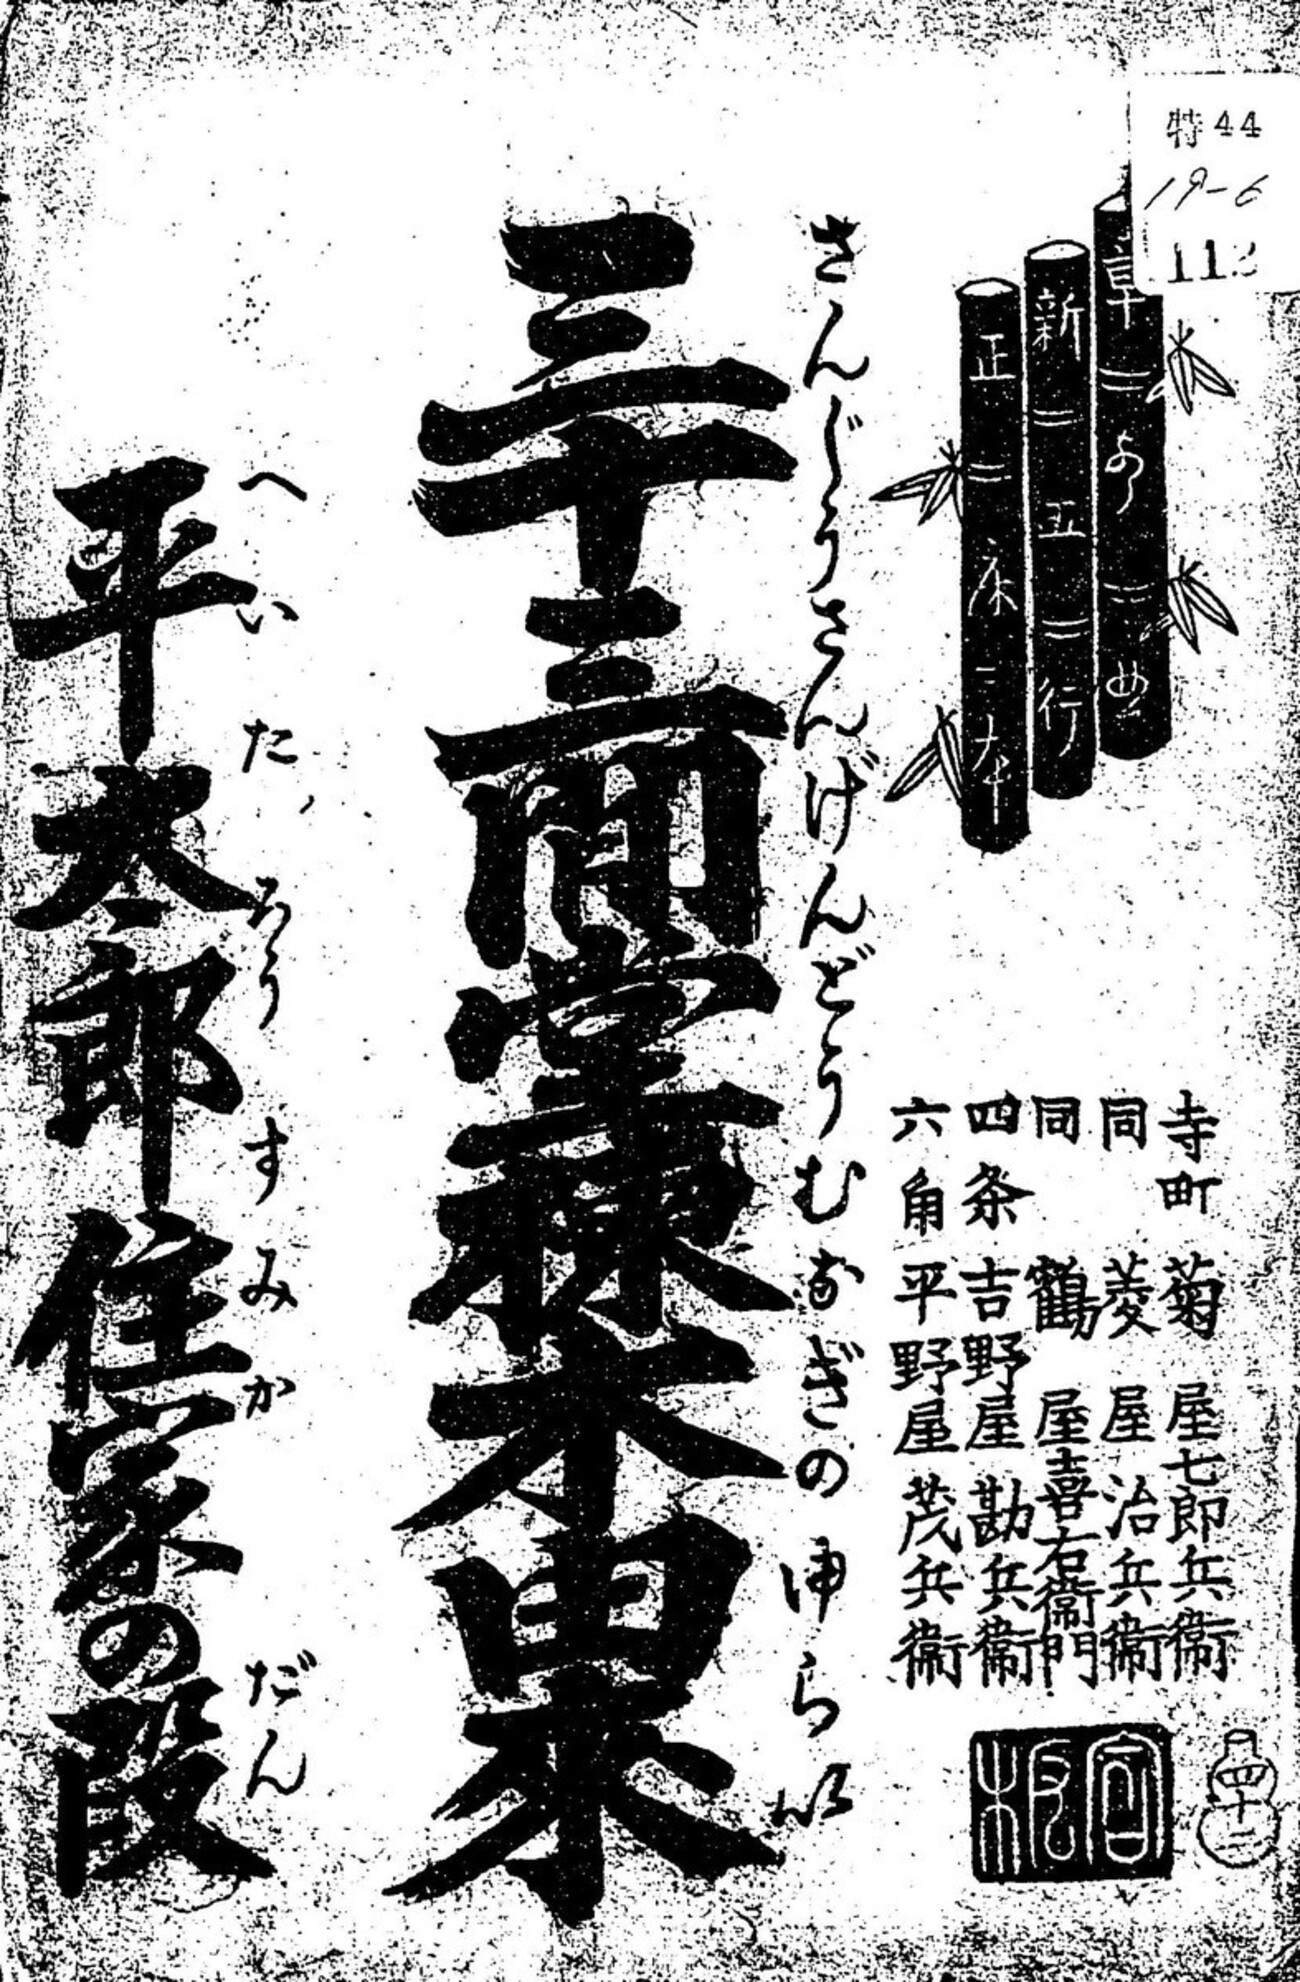 特44
19-6
112
新五行
正本
寺町 菊屋七郎兵衛
同 菱屋治兵衛
同 鶴屋喜右衛門
四条 吉野屋勘兵衛
六角 平野屋茂兵衛
官板
四十二
さんじうさんげんどうむなぎのゆらい
三十三間堂棟木由来
へいたろうすみかだん
平太郎住家の段